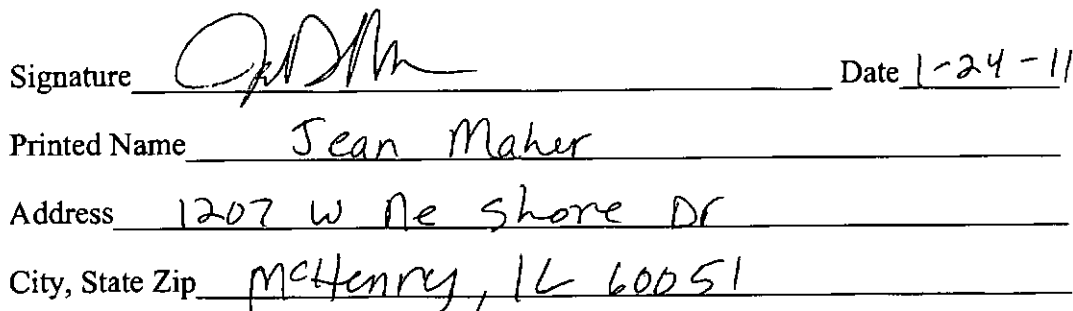 Signature Date 1-24-11
Printed Name Jean Maher
Address 1207 W Ne Shore Dr
City, State Zip McHenry, IL 60051